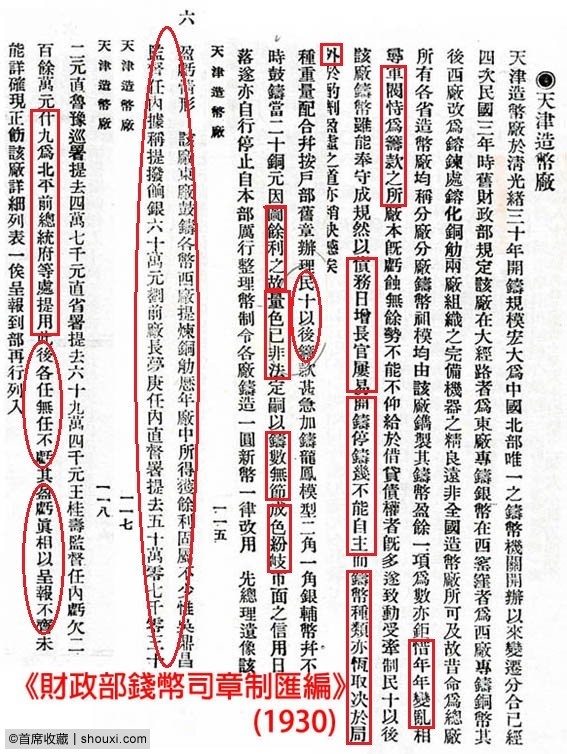 天津造幣廠
天津造幣廠於清光緒三十年開鑄規模宏大爲中國北部唯一之鑄幣機關開辦以來變遷分合已經
四次民國三年時舊財政部規定該廠在大經路者爲東廠專鑄銀幣在西窰窪者爲西廠專鑄銅幣其
後西廠改爲鎔鍊處鎔化銅觔兩廠組織之完備機器之精良遠非全國造幣廠所可及故昔命爲總廠
所有各省造幣廠均稱分廠分廠鑄幣祖模均由該廠鐫製其鑄幣盈餘一項爲數亦鉅惜年年變亂相
尋軍閥恃爲籌款之所廠本旣虧蝕無餘勢不能不仰給於借貸債權者旣多遂致動受牽制民十以後
該廠鑄幣雖能奉守成規然以債務日增長官屢易開鑄停鑄幾不能自主而鑄幣種類亦恆取決於局
外於酌劑盈虛之道亦
種重量配合幷按戶部舊章辦理民十以後籌款甚急加鑄龍鳳模型二角一角銀輔幣幷不
時鼓鑄當二十銅元因圖餘利之故量色已非法定嗣以鑄數無節成色紛歧市面之信用日
落遂亦自行停止自本部厲行整理幣制令各廠鑄造一圓新幣一律改用 先總理遺像該
天津造幣廠 一一五
六
盈虧情形 該廠東廠鼓鑄各幣西廠提煉銅觔歷年廠中所得獲餘利固屬不少惟吳鼎昌
監督任內據稱提撥餉銀六十萬元劉前廠長夢庚任內直督署提去五十萬零七千零三十
天津造幣廠 一一七
天津造幣廠 一一八
二元直魯豫巡署提去四萬七千元直省署提去六十九萬四千元王桂壽監督任內虧欠二
百餘萬元什九爲北平前總統府等處提用此後各任無任不虧其盈虧眞相以呈報不齊未
能詳確現正飭該廠詳細列表一俟呈報到部再行列入
《財政部錢幣司章制匯編》
(1930)
©首席收藏 | shouxi.com